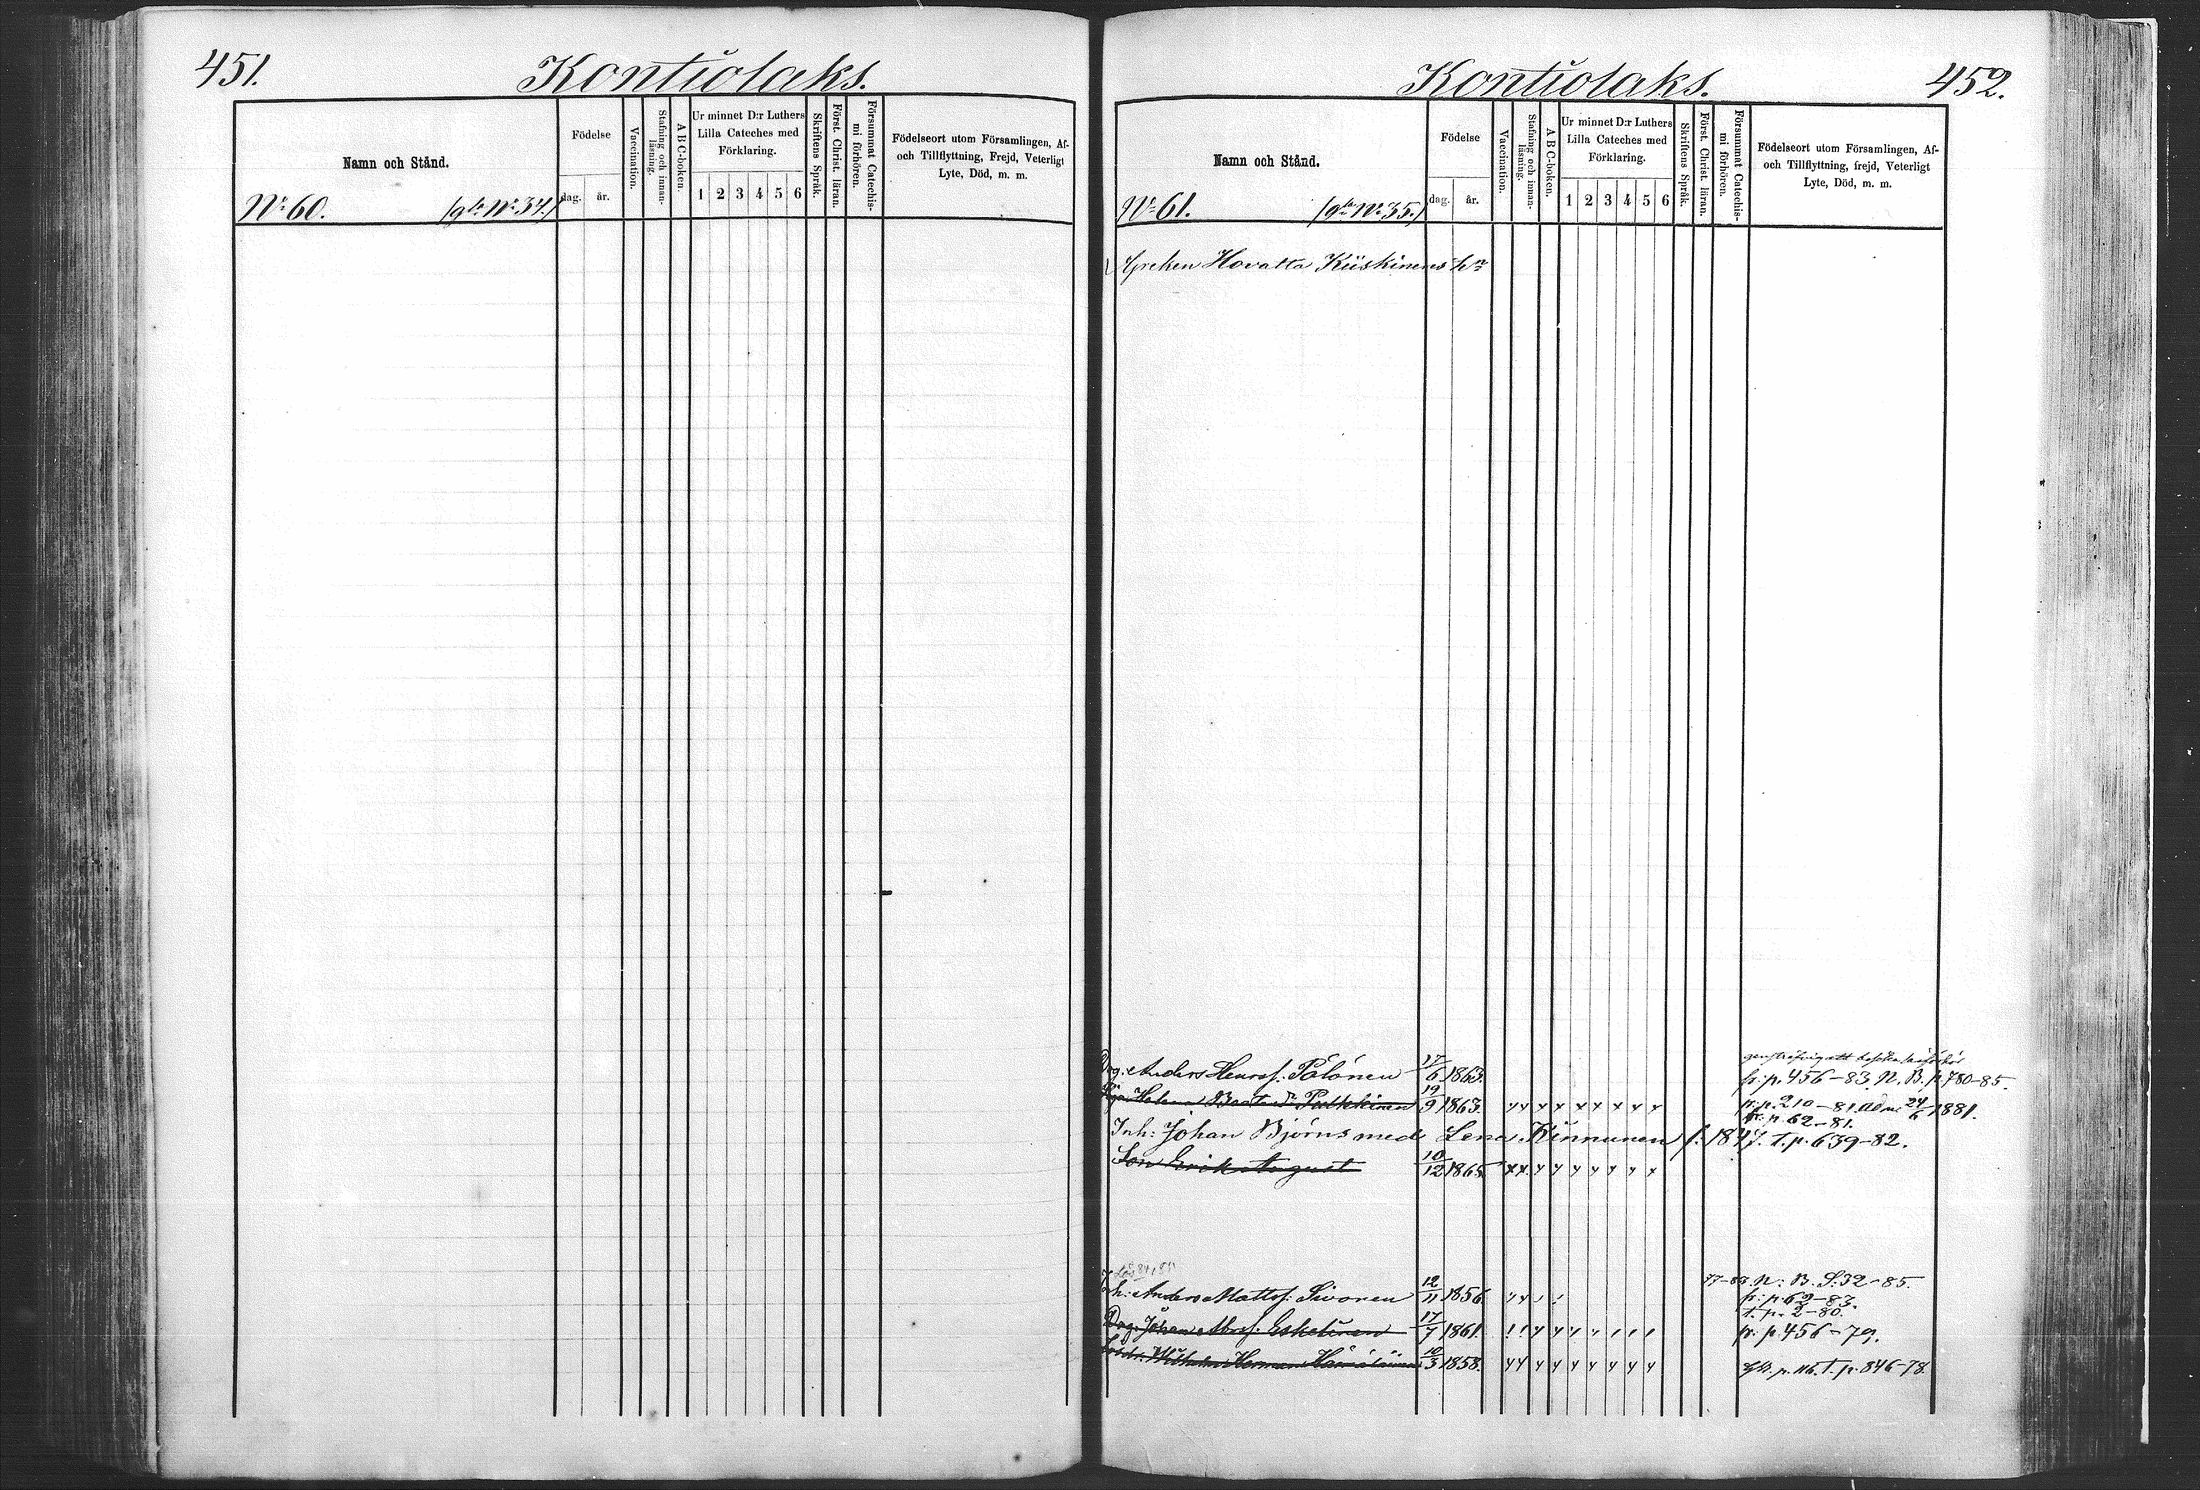 451. Kontiolaks.
Namn och Stånd.
No 60. (gla No 34.)
Födelse
dag. år.
Vaccination.
Stafning och innan-läsning.
A B C-boken.
Ur minnet D:r Luthers
Lilla Cateches med
Förklaring.
1 2 3 4 5 6
Skriftens Språk.
Först. Christ. läran.
Försummat Catechis-mi förhören.
Födelseort utom Församlingen, Af-
och Tillflyttning, Frejd, Veterligt
Lyte, Död, m. m.
Kontiolaks. 452.
Namn och Stånd.
No 61. (gla No 35.)
Födelse
dag. år.
Vaccination.
Stafning och innan-läsning.
A B C-boken.
Ur minnet D:r Luthers
Lilla Cateches med
Förklaring.
1 2 3 4 5 6
Skriftens Språk.
Först. Christ. läran.
Försummat Catechis-mi förhören.
Födelseort utom Församlingen, Af-
och Tillflyttning, frejd, Veterligt
Lyte, Död, m. m.
Greken Hovatta Kiiskinens hn
Drg: Anders Henrsf. Pölönen 17/6 1863. fr: p. 456-83. N. B. p. 780-85.
Helena Beata Dr Pulkkinen 19/9 1863. fr. p. 210-81. Adm. 24/6 1881.
fr. p. 62-81.
Inh: Johan Björns med Lena Kinnunen f. 1847. T. p. 639-82.
Son Erik August 10/12 1865
77-83 N: B. S: 32-85.
Inh: Anders Mattsf: Sivonen 12/11 1856. fr: p. 62-83.
T. p. 2-80.
Drg: Johan Abrsf. Eskelinen 17/7 1861. fr. p. 456-79.
Wilhelm Herman Hämäläinen 10/3 1858. p. 116. T. p. 846-78.